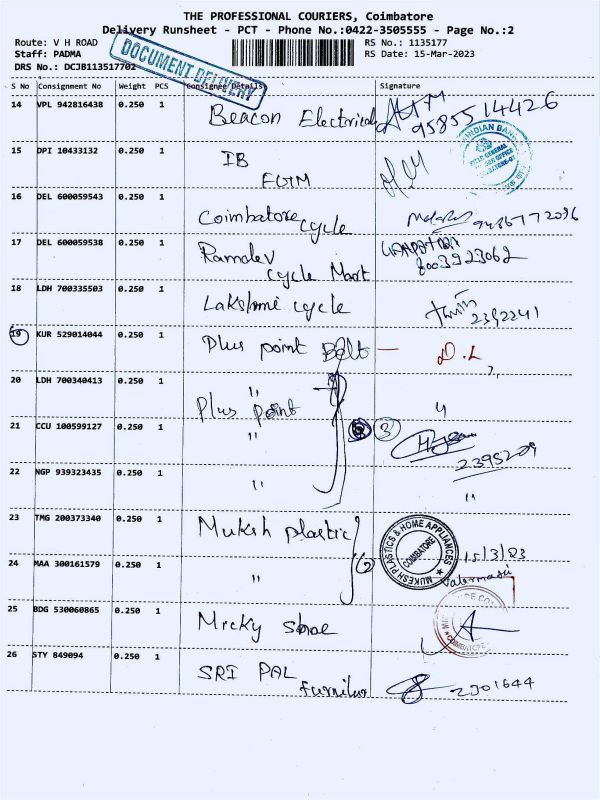 THE PROFESSIONAL COURIERS, Coimbatore
Delivery Runsheet - PCT - Phone No.:0422-3505555 - Page No.:2
Route: V H ROAD
RS No.: 1135177
Staff: PADMA
RS Date: 15-Mar-2023
DRS No.: DCJB113517702
DOCUMENT DELIVERY
S No Consignment No Weight PCS Consignee Details Signature
14 VPL 942816438 0.250 1 Beacon Electricals 9585514426
INDIAN BANK
15 DPI 10433132 0.250 1 IB
16 DEL 600059543 0.250 1 Coimbatore cycle 9486772096
17 DEL 600059538 0.250 1 Ramdev cycle Mart 8003923062
18 LDH 700335503 0.250 1 Lakshmi cycle 2392241
19 KUR 529014044 0.250 1 Plus point Belt — D.L
20 LDH 700340413 0.250 1 Plus point "
21 CCU 100599127 0.250 1 " 3 2395209
22 NGP 939323435 0.250 1 " "
23 TMG 200373340 0.250 1 Mukesh plastic 15/3/23
MUKESH PLASTICS & HOME APPLIANCES
COIMBATORE
24 MAA 300161579 0.250 1 " 2
25 BDG 530060865 0.250 1 Micky shoe
26 STY 849094 0.250 1 SRI PAL furnitur 2301644